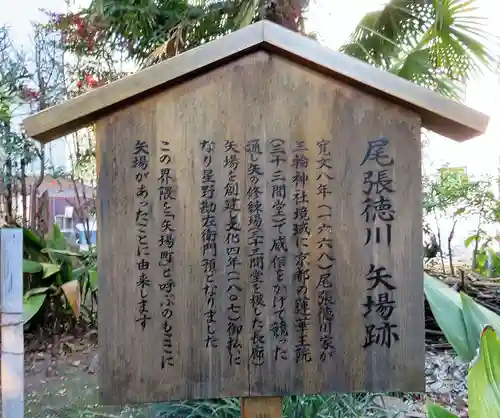 尾張徳川 矢場跡
寛文八年(一六六八)尾張徳川家が
三輪神社境域に京都の蓮華王院
(三十三間堂)で威信をかけて競った
通し矢の修練場三十三間堂を模した長廊
矢場を創建し文化四年(一八〇七)御払に
なり星野勘左衛門預となりました
この界隈を「矢場町」と呼ぶのもここに
矢場があったことに由来します